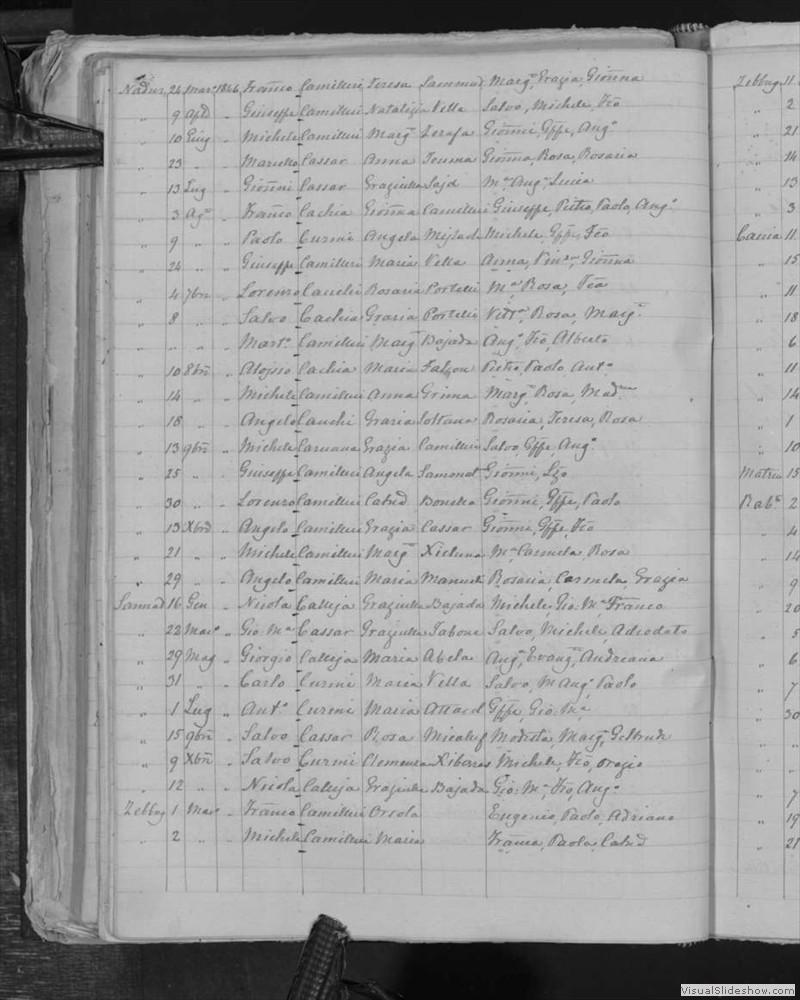 Nadur 24 Mar. 1846 Franco Camilleri Teresa Sammut Marg. Grazia, Gionna
" 9 Apl " Giuseppe Camilleri Natalizia Vella Salvo, Michele, Fco
" 10 Giug " Michele Camilleri Marg. Zerafa Gionni, Gffe, Ang.
" 23 " " Cassar Anna Teuma Gionna, Rosa, Rosaria
" 13 Lug " Gionni Cassar Graziulla Said Ma. Ang. Lucia
" 3 Ago " Franco Cachia Gionna Camilleri Giuseppe, Pietro, Paolo, Ang.
" 9 " " Paolo Curmi Angela Mejlach Michele, Gffe, Fco
" 24 " " Giuseppe Camilleri Maria Vella Anna, Gionna
" 4 7bre " Lorenzo Cauchi Rosaria Portelli Ma. Rosa, Fca
" 8 " " Salvo Cachia Grazia Portelli Vitta. Rosa, Marg.
" " " Mart. Camilleri Marg. Bajada Ang. Fco, Alberto
" 10 8bre " Aloisio Cachia Maria Falzon Pietro, Paolo Ant.
" 14 " " Michele Camilleri Anna Grima Marg. Rosa, Mad.
" 18 " " Angelo Cauchi Grazia Soltana Rosaria, Teresa, Rosa
" 13 9bre " Michele Caruana Grazia Camilleri Salvo, Gffe, Ang.
" 25 " " Giuseppe Camilleri Angela Gionni, Lzo
" 30 " " Lorenzo Camilleri Catnd Gionni, Gffe, Paolo
" 13 Xbre " Angelo Camilleri Grazia Cassar Gionni, Gffe, Fco
" 21 " " Michele Camilleri Marg. Xicluna Ma. Carmela, Rosa
" 29 " " Angelo Camilleri Maria Rosaria, Carmela, Grazia
Sannat 16 Gen " Nicola Calleja Graziulla Bajada Michele, Gio: Ma. Franco
" 22 Mar. " Gio: Ma. Cassar Graziulla Tabone Salvo, Michele, Adeodato
" 29 Mag " Giorgio Calleja Maria Abela Ang. Evang. Andreana
" 31 " " Carlo Curmi Maria Vella Salvo, M. Ang. Paolo
" 1 Lug " Ant. Curmi Maria Attard Gffe, Gio: Ma.
" 15 9bre " Salvo Cassar Rosa Micalef Modesta, Marg. Geltrude
" 9 Xbre " Salvo Curmi Clemenza Xiberras Michele, Fco, Orazio
" 12 " " Nicola Calleja Graziulla Bajada Gio: Ma. Fco, Ang.
Zebbug 1 Mar. " Franco Camilleri Orsola Eugenio, Paolo, Adriano
" 2 " " Michele Camilleri Maria Franca, Paola, Catnd
Zebbug 11
" 2
" 21
" 14
" 13
" 3
Caccia 11
" 15
" 11
" 18
" 6
" 11
" 14
" 1
" 10
Matrice 15
Rabo 2
" 4
" 14
" 9
" 20
" 5
" 6
" 7
" 30
" "
" 7
" 19
" 21
VisualSlideshow.com